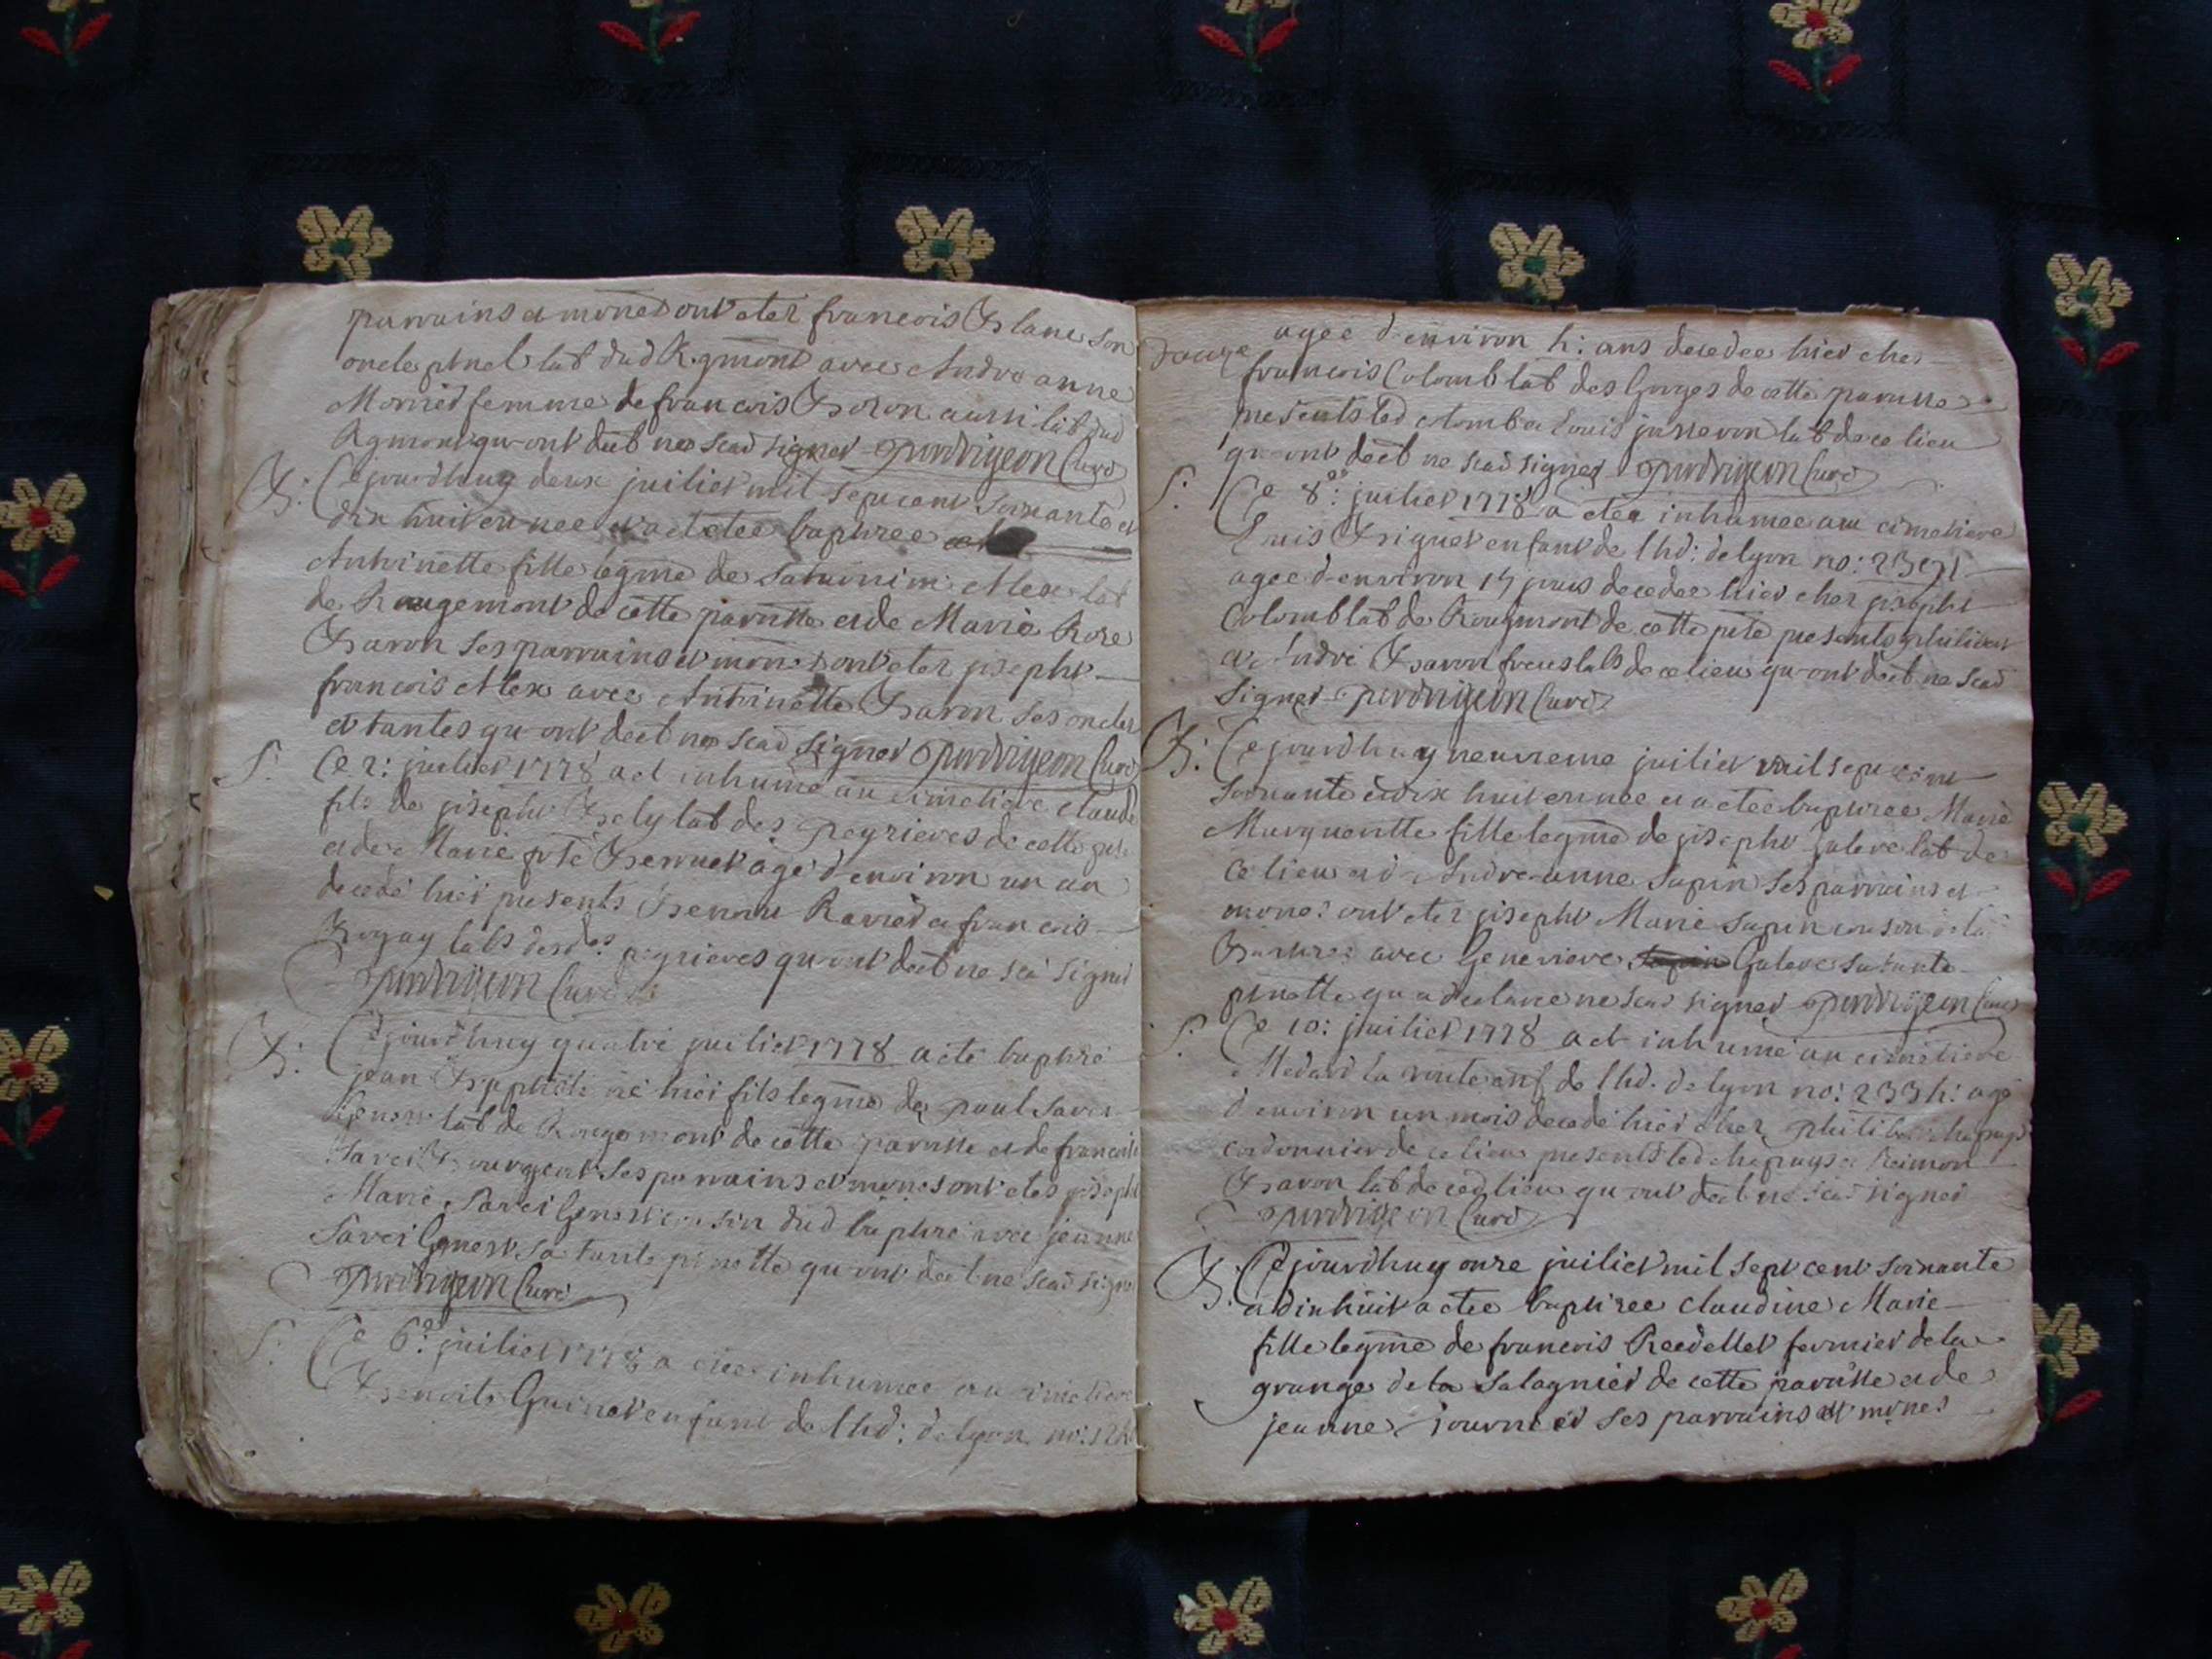 parrains et mones ont eter francois Blanc son
oncle ptnel lab dud R.gmont avec Andre anne
Morned femme de francois Boron aussi lab dud
Rgmont qu-ont deét ne scad signer Perdrigeon Curé
B: Cejourdhuy deux juiliet mil sept cent soixante et
dix huit en nee et a etetee baptizee
Anthinette fille legme de Saturnin Alex lab
de Rougemont de cette parrsse et de Marie Rose
Baron ses parrains et mones ont eter joseph
francois Alex avec Anthinette Baron ses oncles
et tantes qu-ont deét ne scad signer Perdrigeon Curé
S: Ce 2: juiliet 1778 a et inhume au cimetiere Claude
fils de joseph Bely lab des peyrieres de cette psse
et de Marie Bernet agé d-environ un an
decedé hier presents Benoit Ravied et francois
Rogay labs desdes peyrieres qu-ont deét ne sca signer
Perdrigeon Curé
B: Cejourdhuy quatre juiliet 1778 a eté baptizé
jean Baptiste né hier fils legme de paul Savei
Genest lab de Rougemont de cette parrsse et de francoise
Savei Bourgeat ses parrains et mones ont eter joseph
Marie Savei Genest cousin dud baptizé avec jeanne
Savei Genest sa tante pnette qu-ont deét ne scad signer
Perdrigeon Curé
S: Ce 6e: juiliet 1778 a etee inhumee au cimetiere
Benoite Guinet enfant de lhd: de lyon no: 124
douze agee d-environ h: ans decedee hier chez
francois Colomb lab des Gorges de cette parrsse
presents led Colomb et Louis jusseron lab de ce lieu
qu-ont deét ne scad signer Perdrigeon Curé
S: Ce 8e: juiliet 1778 a etee inhumee au cimetiere
Louis Briguet enfant de lhd: de lyon no:
agee d-environ 15 jours decedee hier chez joseph
Colomb lab de Rougmont de cette psse presents philibert
et André Baron freres labs de ce lieu qu-ont deét ne scad
signer Perdrigeon Curé
B: Cejourdhuy neuvieme juiliet mil sept cent
soixante et dix huit en nee et a etee baptizee Marie
Margueritte fille legme de joseph Galere lab de
ce lieu et d-Andre-anne Sapin ses parrains et
mones ont eter joseph Marie Sapin cousin de la
Baptizee avec Genevieve Galere sa tante
pnette qu a declaree ne scad signer Perdrigeon Curé
S: Ce 10: juiliet 1778 a et inhumé au cimetiere
Medard la route enf de lhd. de lyon no: 233h: agé
d environ un mois decedé hier chez philibert chapuys
cordonnier de ce lieu presents led chapuys et Reimon
Baron lab de ced lieu qu-ont deét ne scad signer
Perdrigeon Curé
B: Cejourdhuy onze juiliet mil sept cent soixante
et dix huit a etee baptizee Claudine Marie
fille legme de francois Reedellet fermier de la
grange de la Salagnier de cette parrsse et de
jeanne journied ses parrains et mones